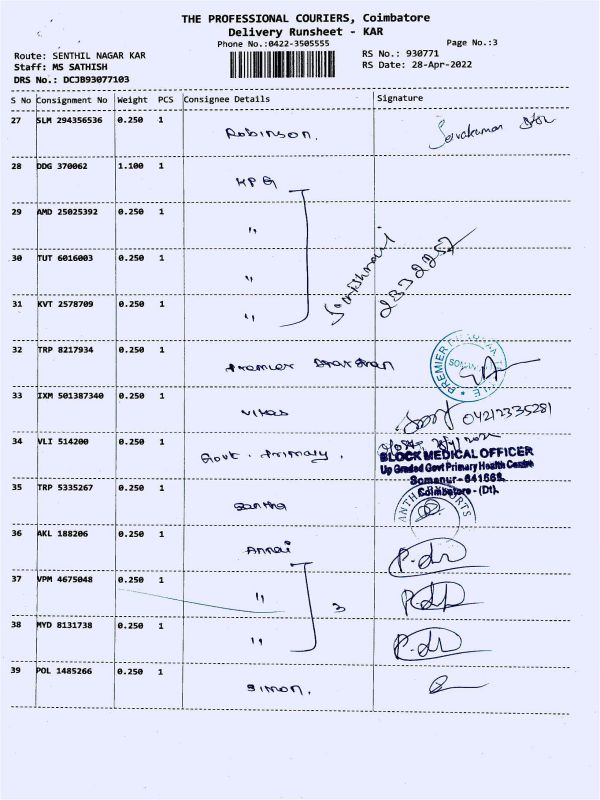 THE PROFESSIONAL COURIERS, Coimbatore
Delivery Runsheet - KAR
Phone No.:0422-3505555
Page No.:3
Route: SENTHIL NAGAR KAR
RS No.: 930771
Staff: MS SATHISH
RS Date: 28-Apr-2022
DRS No.: DCJB93077103
S No Consignment No Weight PCS Consignee Details Signature
27 SLM 294356536 0.250 1 Robinson.
28 DDG 370062 1.100 1 KPG
29 AMD 25025392 0.250 1 "
30 TUT 6016003 0.250 1 "
31 KVT 2578709 0.250 1 "
32 TRP 8217934 0.250 1 Premier
PREMIER
33 IXM 501387340 0.250 1 Vikas 04212335281
34 VLI 514200 0.250 1 Govt. Primary.
BLOCK MEDICAL OFFICER
Up Graded Govt Primary Health Centre
Somanur - 641668,
Coimbatore - (Dt).
35 TRP 5335267 0.250 1 Santha
36 AKL 188206 0.250 1 Annai
37 VPM 4675048 0.250 1 " 3
38 MYD 8131738 0.250 1 "
39 POL 1485266 0.250 1 Simon.